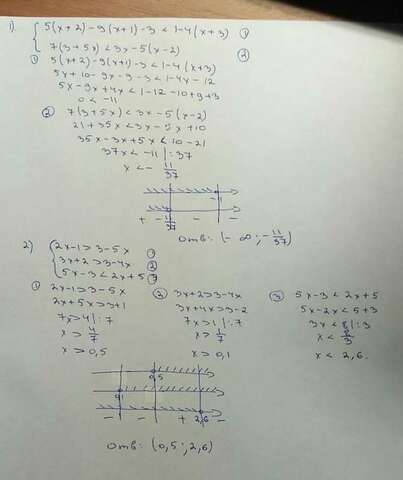 1) { 5(x+2)-9(x+1)-3<1-4(x+3) ①
7(3+5x)<3x-5(x-2) ②
① 5(x+2)-9(x+1)-3<1-4(x+3)
5x+10-9x-9-3<1-4x-12
5x-9x+4x<1-12-10+9+3
0<-11
② 7(3+5x)<3x-5(x-2)
21+35x<3x-5x+10
35x-3x+5x<10-21
37x<-11 |:37
x<-11/37
-11
+ -11/37 - -
Отв: (-∞; -11/37)
2) { 2x-1>3-5x ①
3x+2>3-4x ②
5x-3<2x+5 ③
① 2x-1>3-5x ② 3x+2>3-4x ③ 5x-3<2x+5
2x+5x>3+1 3x+4x>3-2 5x-2x<5+3
7x>4 |:7 7x>1 |:7 3x<8 |:3
x>4/7 x>1/7 x<8/3
x>0,5 x>0,1 x<2,6
0,5
0,1
- - + 2,6 -
Отв: (0,5; 2,6)